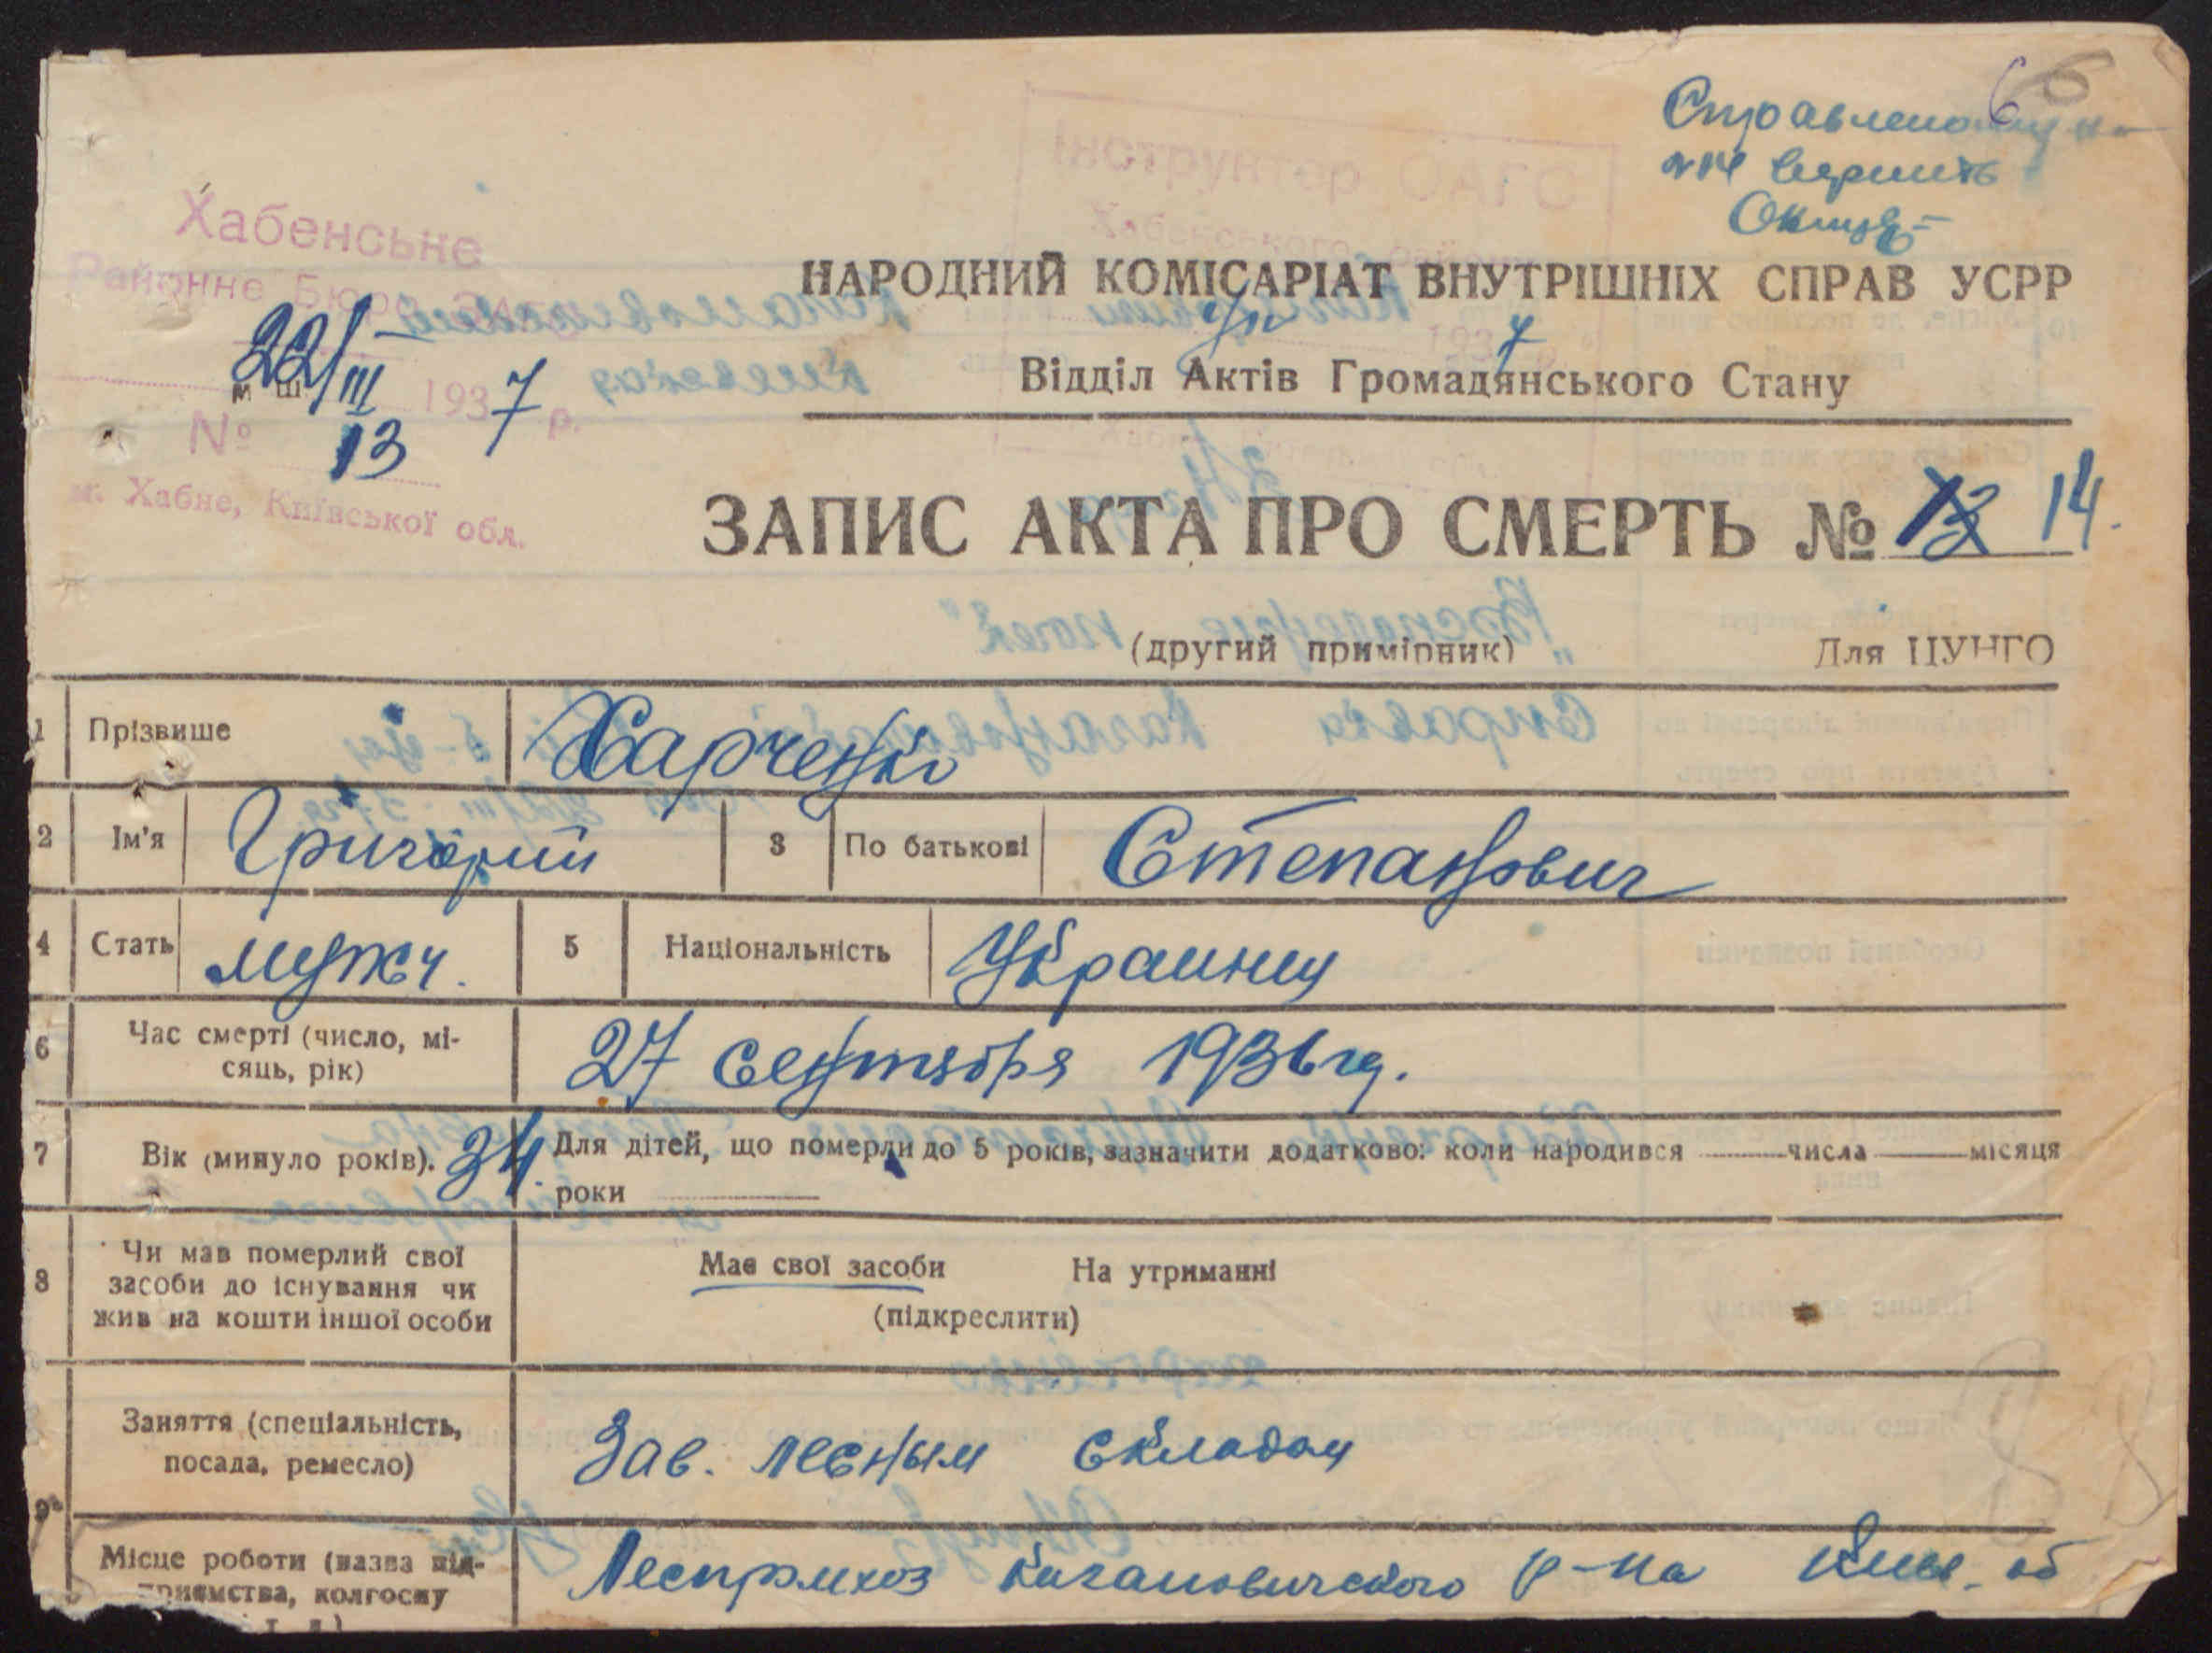 6
Справлено
вірить
Хабенське
Районне Бюро ЗАГС
22/III 1937 р.
№ 13
м. Хабне, Київської обл.
Інструктор ОАГС
Хабенського району
НАРОДНИЙ КОМІСАРІАТ ВНУТРІШНІХ СПРАВ УСРР
Відділ Актів Громадянського Стану
ЗАПИС АКТА ПРО СМЕРТЬ № 13 14.
(другий примірник) Для ЦУНГО
1 Прізвище Харченко
2 Ім'я Григорий 3 По батькові Степанович
4 Стать мужч. 5 Національність Украинец
6 Час смерті (число, мі-
сяць, рік) 27 сентября 1936 гд.
7 Вік (минуло років). 34. Для дітей, що померли до 5 років, зазначити додатково: коли народився числа місяця
роки
8 Чи мав померлий свої
засоби до існування чи
жив на кошти іншої особи
Має свої засоби На утриманні
(підкреслити)
9 Заняття (спеціальність,
посада, ремесло) Зав. лесным складом
Місце роботи (назва під-
приємства, колгоспу
і т. д.)
Леспромхоз Кагановического р-на Киев. об